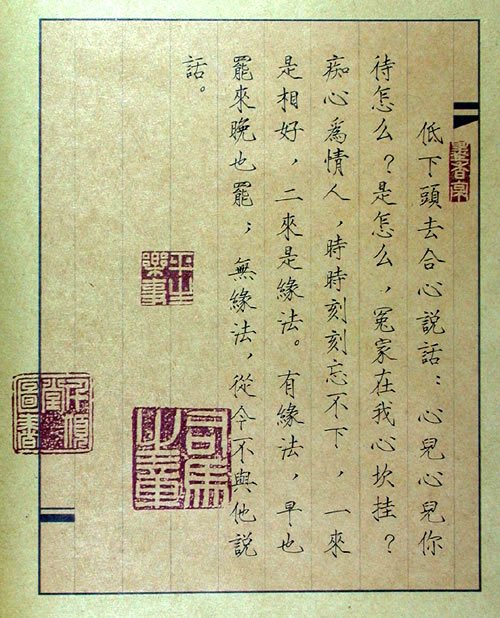 低下頭去合心說話：心兒心兒你
待怎么？是怎么，冤家在我心坎挂？
痴心爲情人，時時刻刻忘不下，一來
是相好，二來是緣法。有緣法，早也
罷來晚也罷；無緣法，從今不與他說
話。